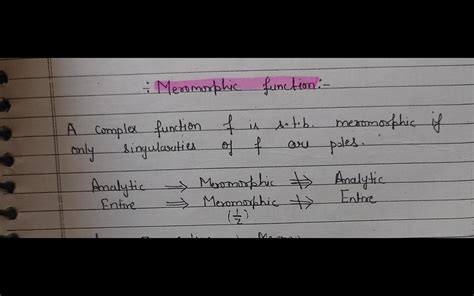 ÷ Meromorphic function:-
A complex function f is s.t.b. meromorphic if
only singularities of f are poles.
Analytic ⇒ Meromorphic ⇏ Analytic
Entire ⇒ Meromorphic ⇏ Entire
(1/z)